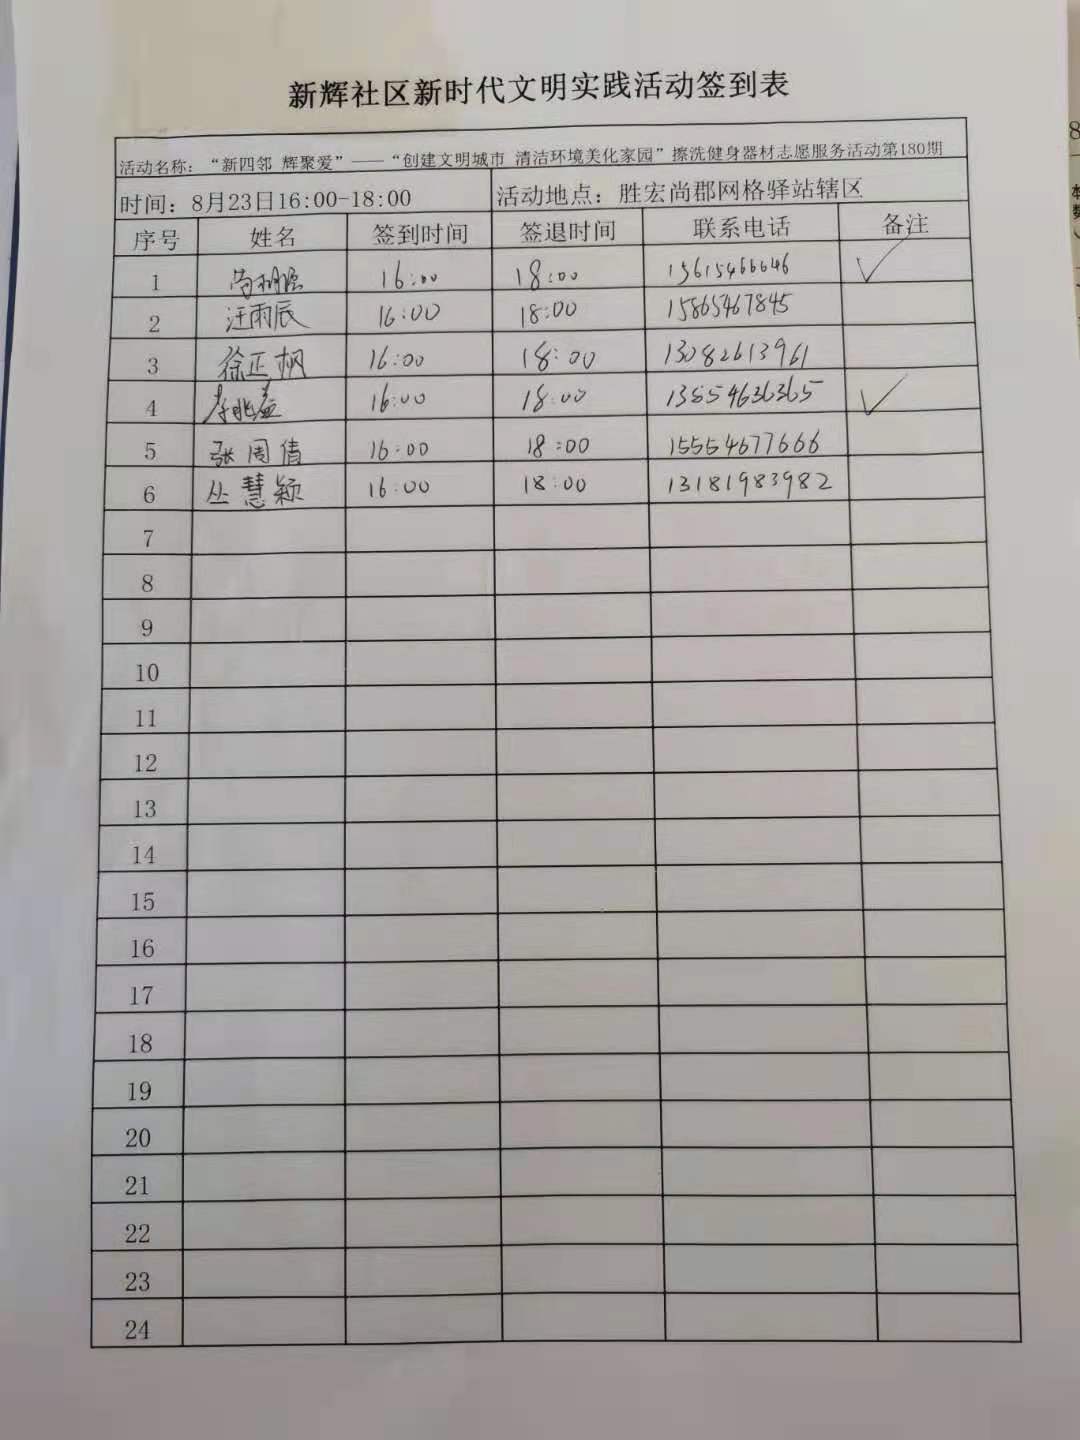 新辉社区新时代文明实践活动签到表
活动名称：“新四邻 辉聚爱”——“创建文明城市 清洁环境美化家园”擦洗健身器材志愿服务活动第180期
时间：8月23日16:00-18:00 活动地点：胜宏尚郡网格驿站辖区
序号 姓名 签到时间 签退时间 联系电话 备注
1 16:00 18:00 15615466646 ✓
2 汪雨辰 16:00 18:00 15865467845
3 徐正枫 16:00 18:00 13082613961
4 16:00 18:00 13854636365 ✓
5 张周倩 16:00 18:00 15554677666
6 丛慧颖 16:00 18:00 13181983982
7
8
9
10
11
12
13
14
15
16
17
18
19
20
21
22
23
24
8